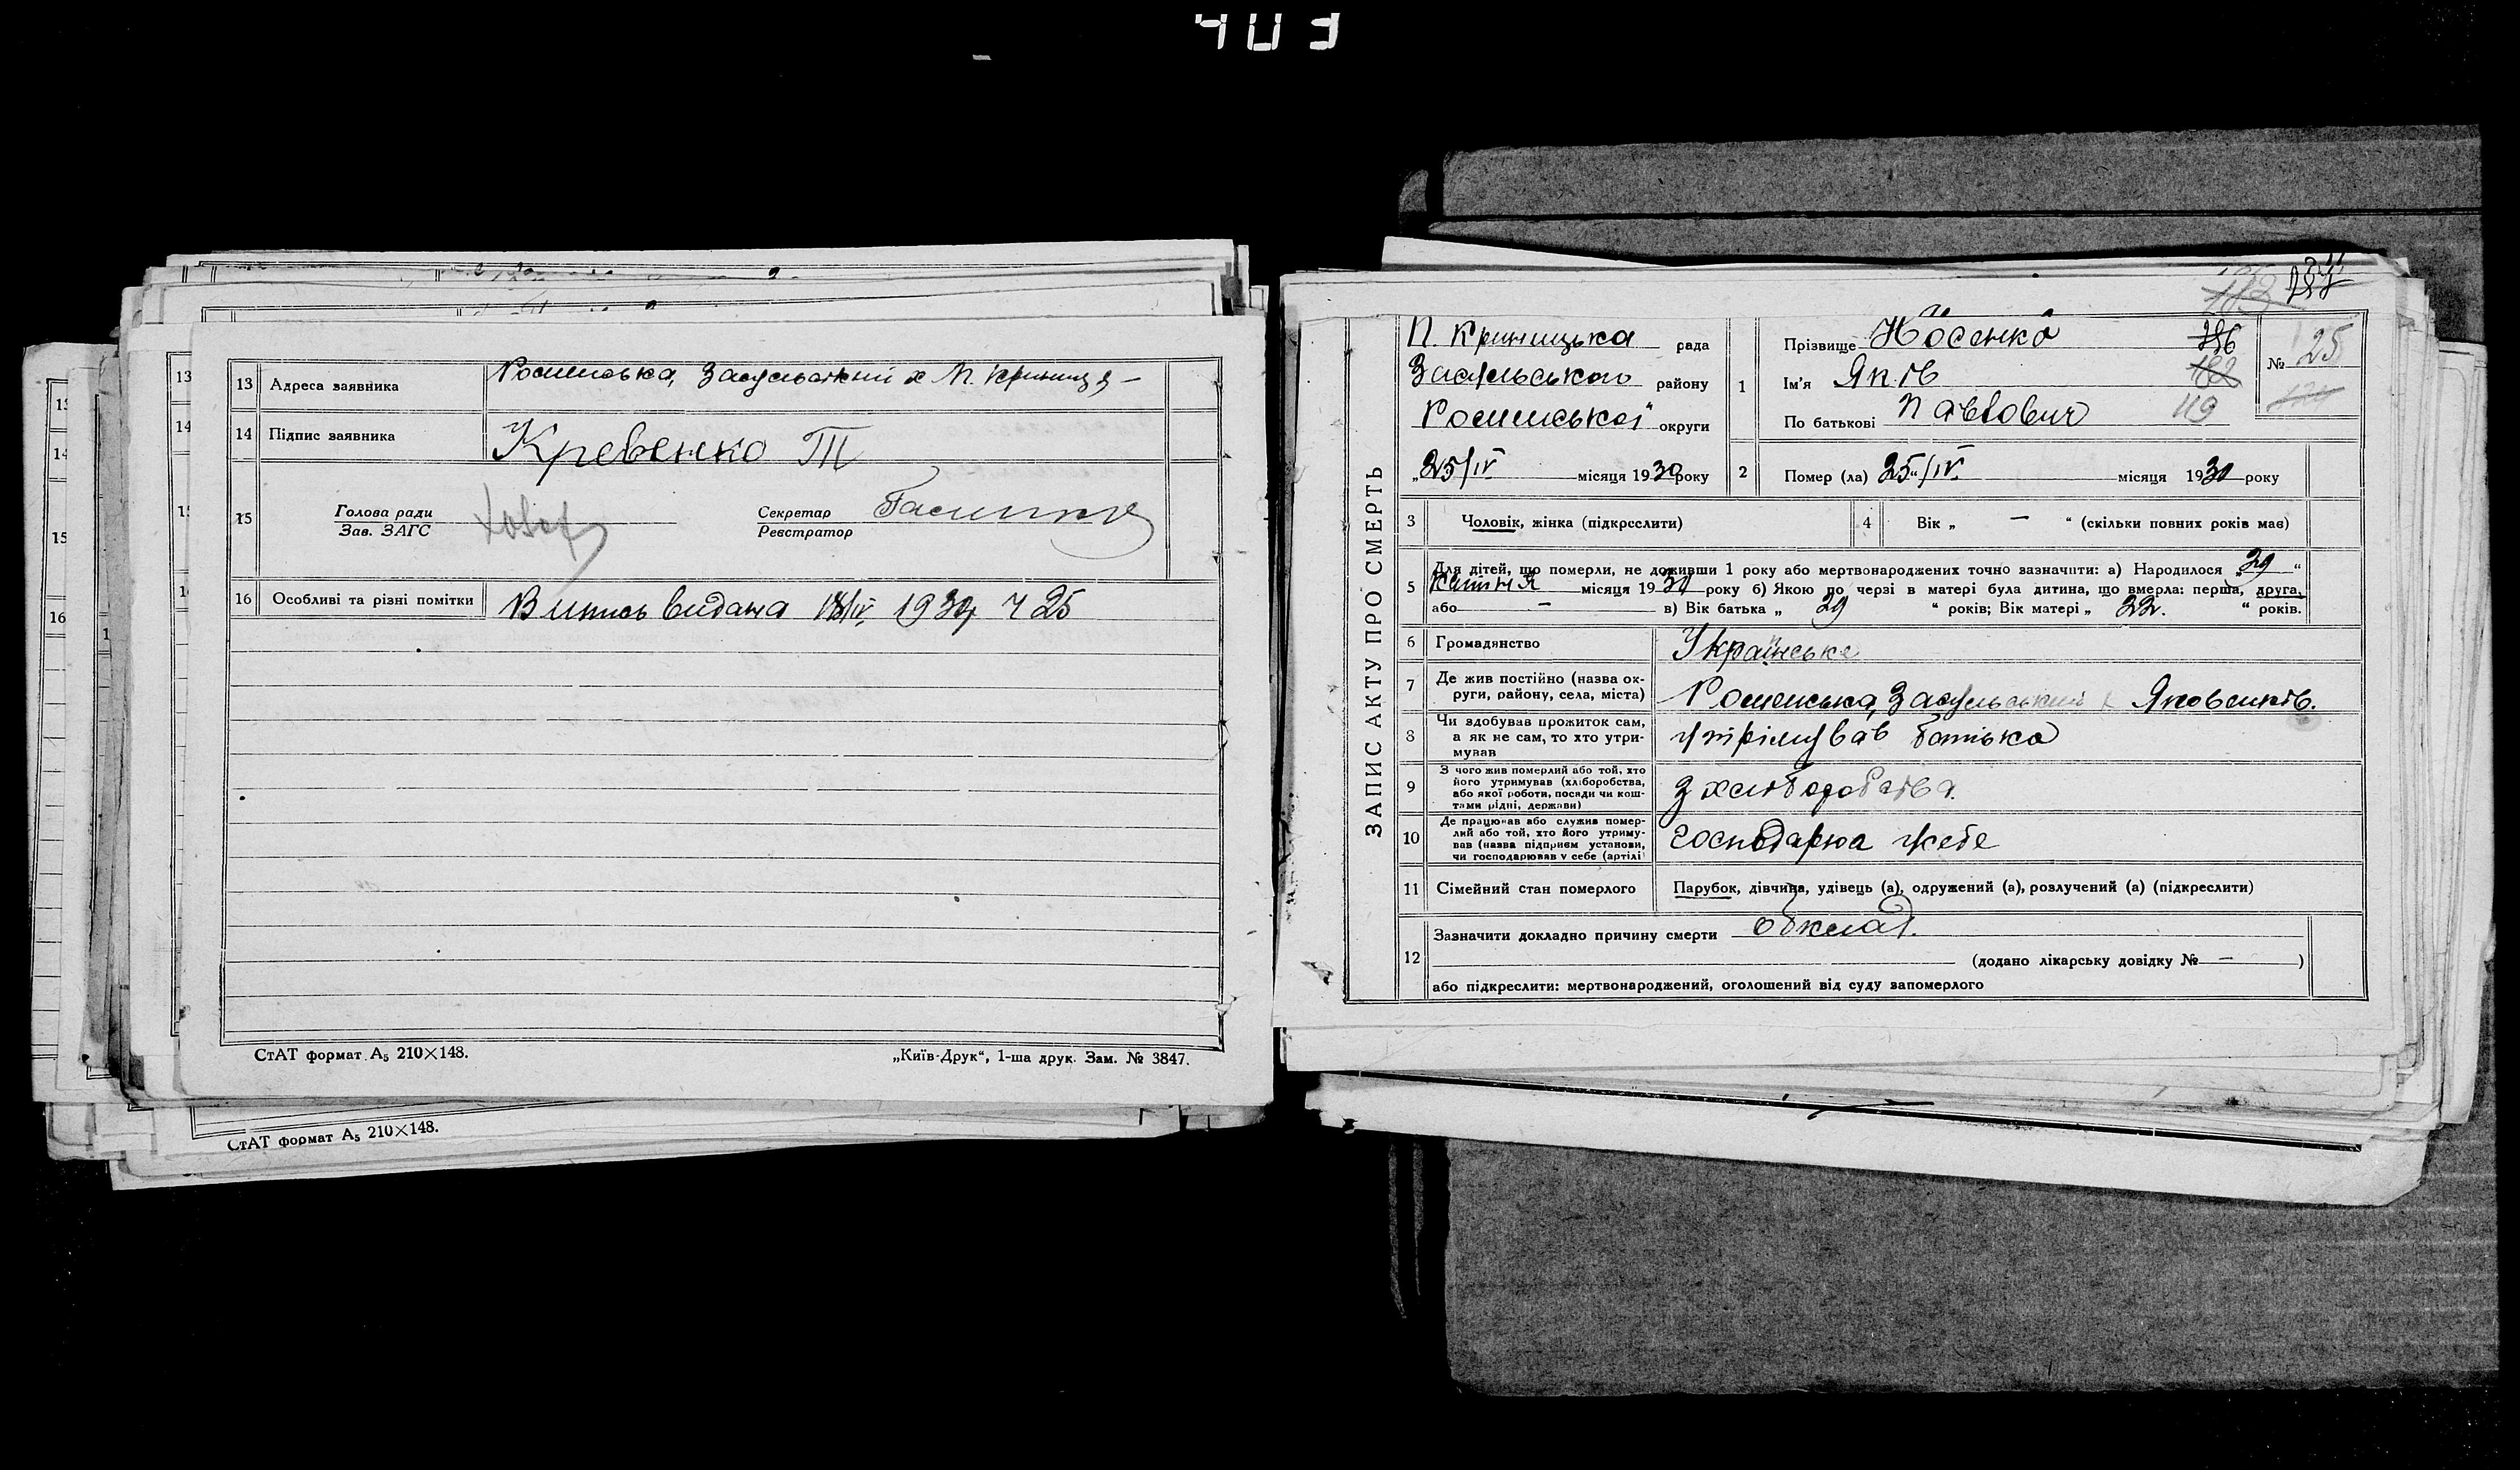 403
13 Адреса заявника Роменська, Засульський х П. Криниця –
14 Підпис заявника Кревенко Т
15 Голова ради
Зав. ЗАГС
Секретар
Реєстратор
16 Особливі та різні помітки Випись видана 1930 Ч 25
СтАТ формат А5 210×148.
„Київ-Друк“, 1-ша друк. Зам. № 3847.
СтАТ формат А5 210×148.
13
14
15
16
ЗАПИС АКТУ ПРО СМЕРТЬ
П. Криницька рада
Засульського району
Роменської округи
„25/IV місяця 1930 року
1 Прізвище Носенко
Ім'я Яків
По батькові Павлович
286
182
119
№ 25
2 Помер (ла) 25“/IV. місяця 1930 року
3 Чоловік, жінка (підкреслити)
4 Вік „ — “ (скільки повних років мав)
5 Для дітей, що померли, не доживши 1 року або мертвонароджених точно зазначити: а) Народилося „29“
квітня місяця 1930 року б) Якою по черзі в матері була дитина, що вмерла: перша, друга,
або – в) Вік батька „ 29 “ років; Вік матері „ 22. “ років.
6 Громадянство Українське
7 Де жив постійно (назва округи, району, села, міста) Роменська, Засульський х Яковенків.
8 Чи здобував прожиток сам, а як не сам, то хто утримував утрімував батько
9 З чого жив померлий або той, хто його утримував (хліборобства, або якої роботи, посади чи коштами рідні, держави) З хліборобства
10 Де працював або служив померлий або той, хто його утримував (назва підприєм установи, чи господарював у себе (артілі) господарюа усебе
11 Сімейний стан померлого Парубок, дівчина, удівець (а), одружений (а), розлучений (а) (підкреслити)
12 Зазначити докладно причину смерти обклад.
(додано лікарську довідку № — )
або підкреслити: мертвонароджений, оголошений від суду запомерлого